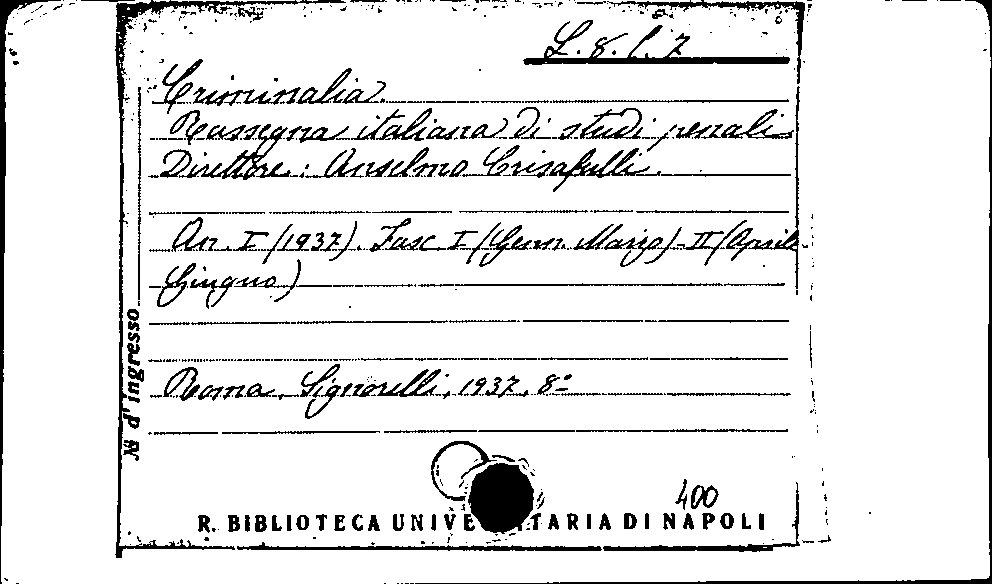 L. 8. l. 7
Criminalia.
Rassegna italiana di studi penali
Direttore: Anselmo Crisafulli.
An. I (1937). Fasc I (Genn. Marzo) - II (Aprile
Giugno)
Roma, Signorelli, 1937, 8º
No d'ingresso
400
R. BIBLIOTECA UNIVE TARIA DI NAPOLI